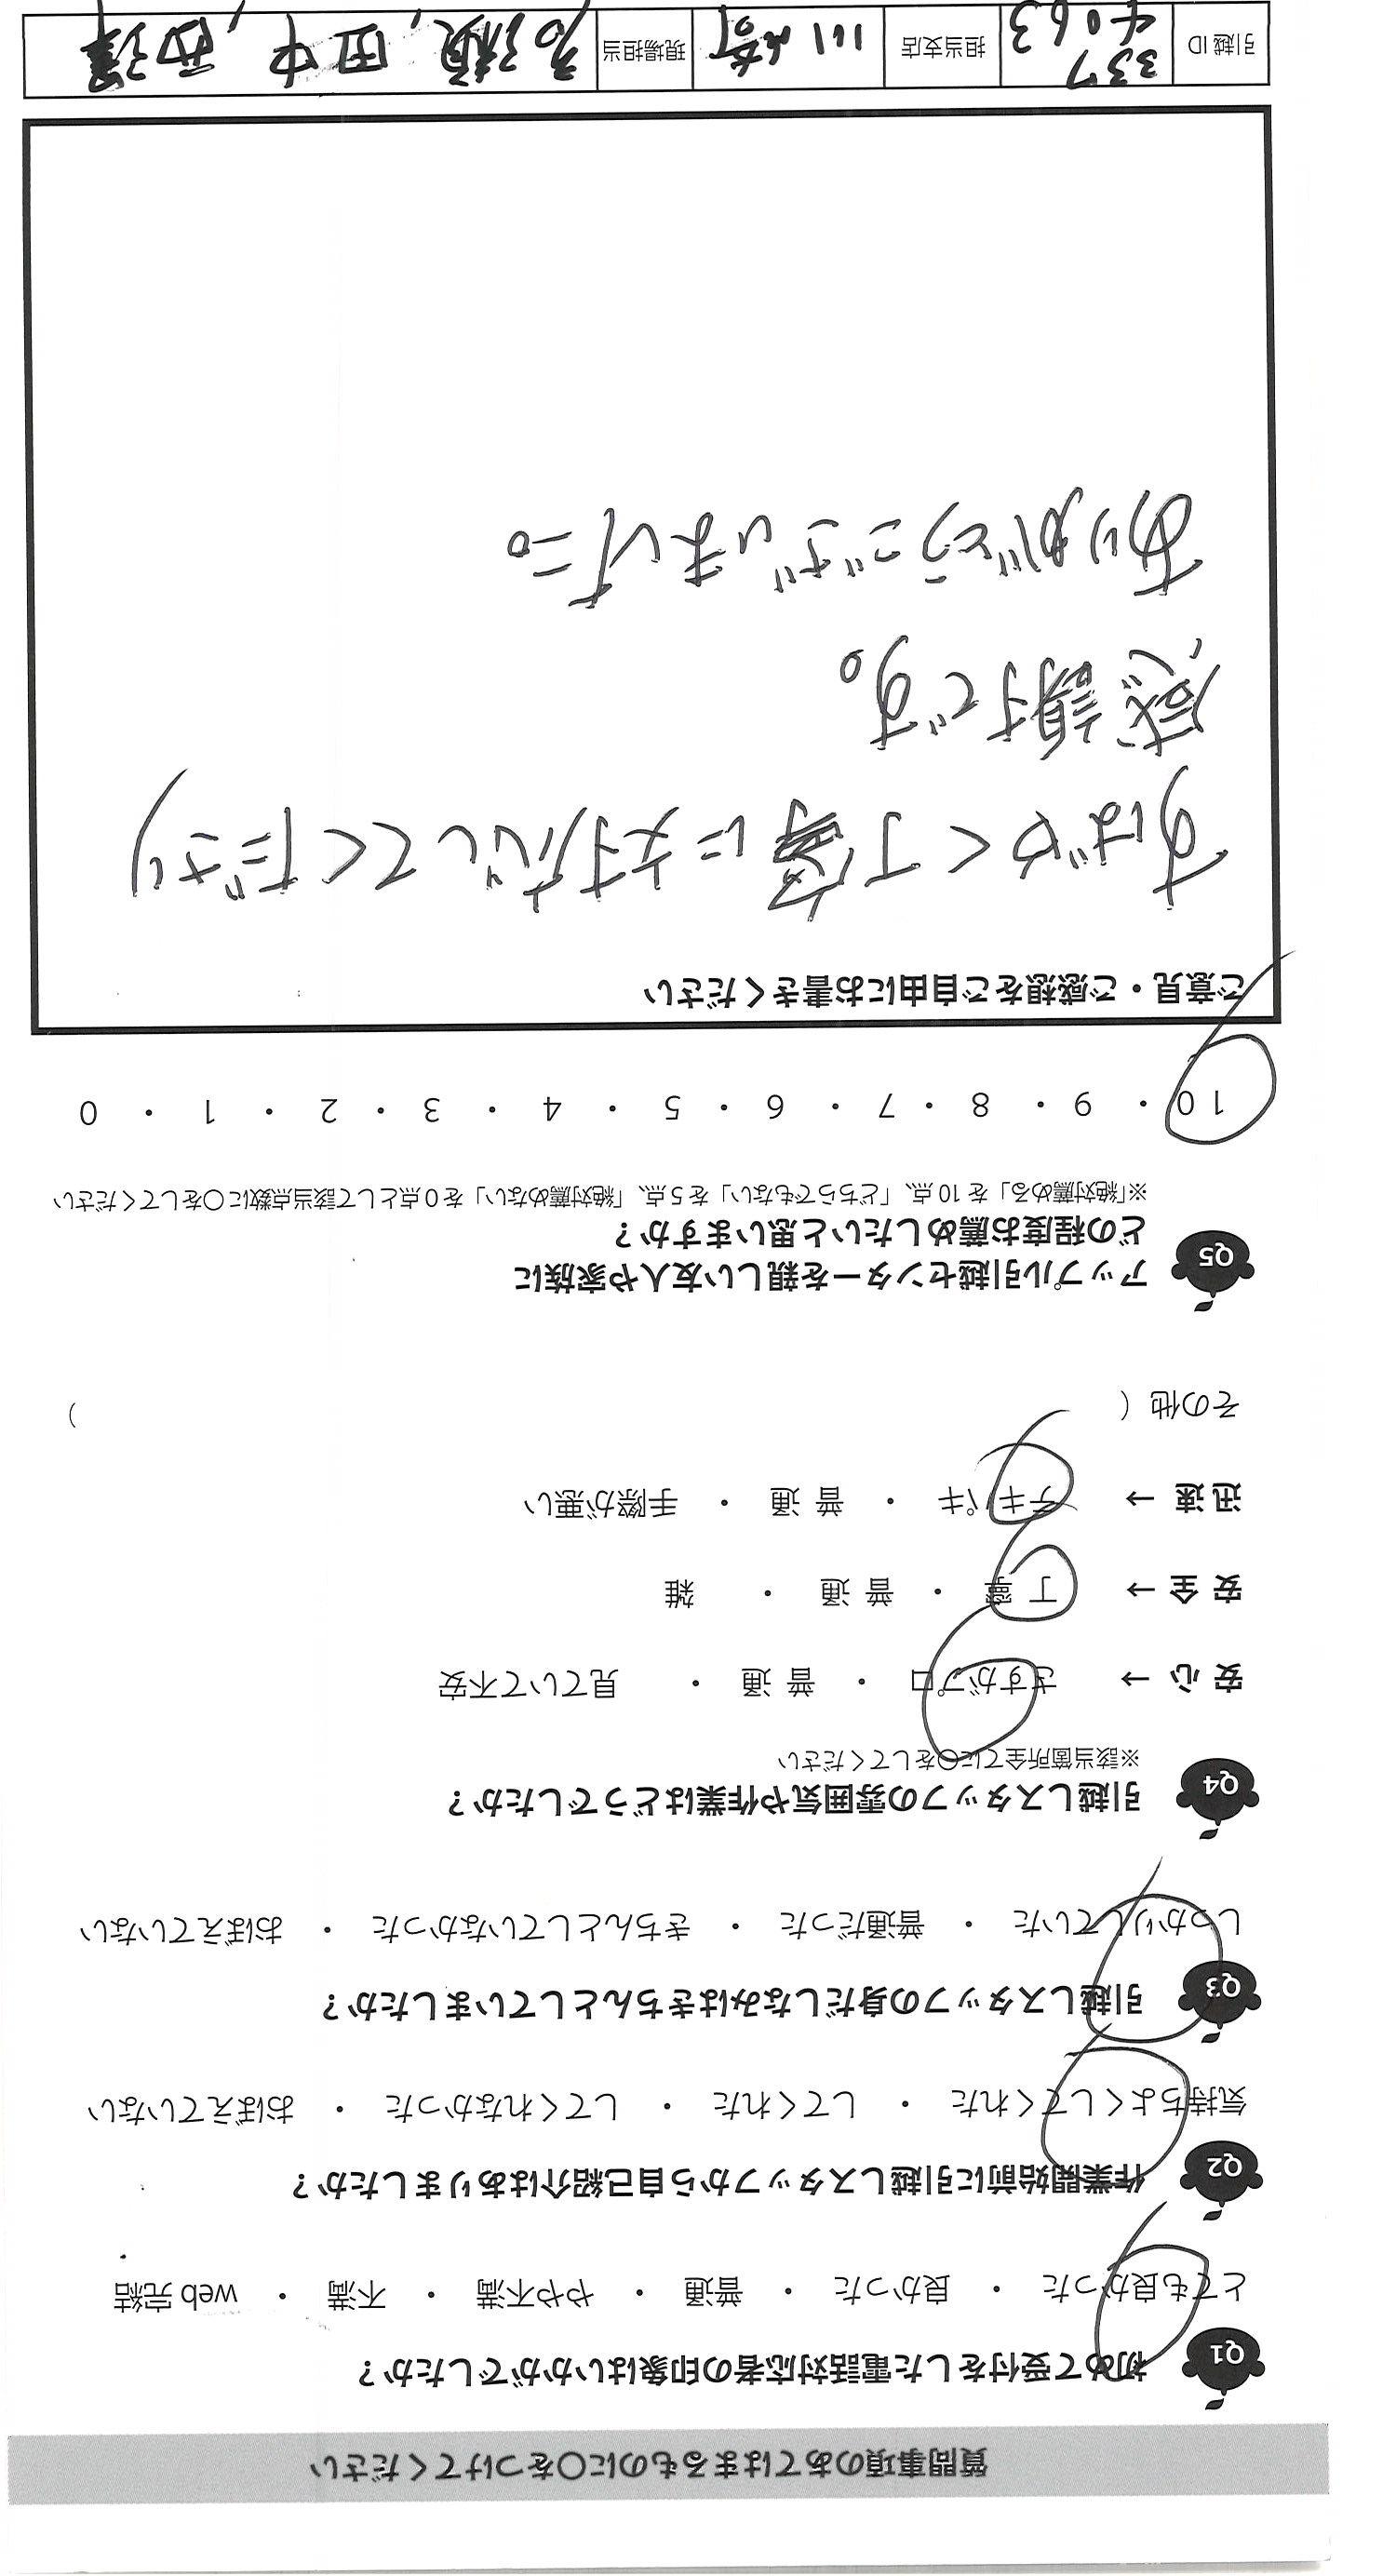 質問事項のあてはまるものに○をつけてください
Q1 初めて受付をした電話対応者の印象はいかがでしたか？
とても良かった ・ 良かった ・ 普通 ・ やや不満 ・ 不満 ・ web 完結
Q2 作業開始前に引越しスタッフから自己紹介はありましたか？
気持ちよくしてくれた ・ してくれた ・ してくれなかった ・ おぼえていない
Q3 引越しスタッフの身だしなみはきちんとしていましたか？
しっかりしていた ・ 普通だった ・ きちんとしていなかった ・ おぼえていない
Q4 引越しスタッフの雰囲気や作業はどうでしたか？
※該当箇所全てに○をしてください
安 心 → さすがプロ ・ 普 通 ・ 見ていて不安
安 全 → 丁 寧 ・ 普 通 ・ 雑
迅 速 → テキパキ ・ 普 通 ・ 手際が悪い
その他（ ）
Q5 アップル引越センターを親しい友人や家族に
どの程度お薦めしたいと思いますか？
※「絶対薦める」を 10 点、「どちらでもない」を 5 点、「絶対薦めない」を 0 点として該当点数に○をしてください
10 ・ 9 ・ 8 ・ 7 ・ 6 ・ 5 ・ 4 ・ 3 ・ 2 ・ 1 ・ 0
ご意見・ご感想をご自由にお書きください
すばやく丁寧に対応してくださり
感謝です。
ありがとうございました。
引越 ID 337 4063 担当支店 川崎 現場担当 田中, 西澤